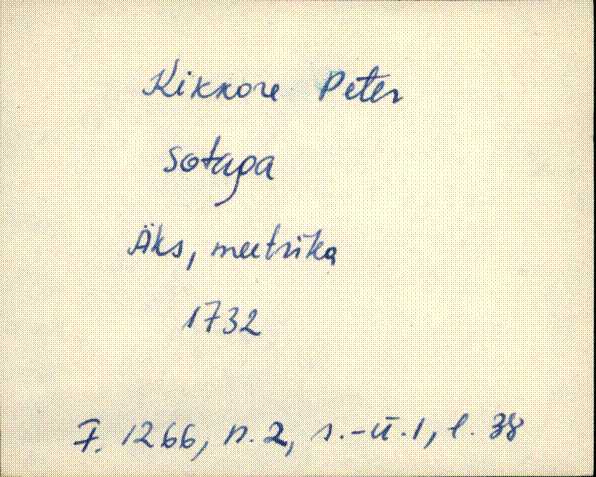 Kikkore Peter
Sotaga
Äks, meetrika
1732
F. 1266, n. 2, s.-ü. 1, l. 38